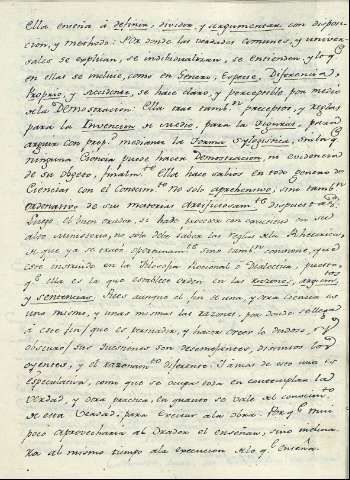 Ella enseña á definir, dividir, y argumentar con disposi-
cion, y methodo: Por donde las verdades comunes, y univer-
sales se explican, se individualizan, se entienden, y lo q.e
en ellas se incluie, como en Genero, Especie, Diferencia,
Proprio, y Accidente, se hace claro, y perceptible por medio
de la Demostracion: Ella trae tamb.n preceptos, y reglas
para la Invencion de Medio, para la
arguir con prop.d mediante la Forma Sylogistica, sin la q.e
ninguna Ciencia puede hacer Demostracion, ni evidencia
de su objeto, finalm.te Ella hace sabios en todo genero de
Ciencias con el Conocim.to no solo aprehensivo, sino tamb.n
ordenativo de sus materias dispuestas.
Luego, el buen orador, si hade proceder con en su
alto ministerio, no solo debe saber las reglas de la Rhetorica,
de que ya se trató, sino tamb.n conviene, que
esté instruido en la Filosofia Racional ó Dialectica, puesto,
q.e ella es la que establece orden en las Razones, argum.tos
y sentencias. Pues aunque el fin de una, y otra Ciencia es
uno mismo, y unas mismas las razones, por donde se llega
á este fin/ que es persuadir, y hacer creer lo dudoso, y
obscuro/ sus questiones son desemejantes, distintos los
oyentes, y el razonam.to diferente. Y á mas de eso una es
especulativa, como que se ocupa toda en contemplar la
verdad, y otra practica, en quanto se vale del conocim.to
de esta Verdad, para excitar á la obra. Porq.e mui
poco aprovecharia al Orador el enseñar, sino inclina-
ra al mismo tiempo á la execucion de lo q.e enseña.